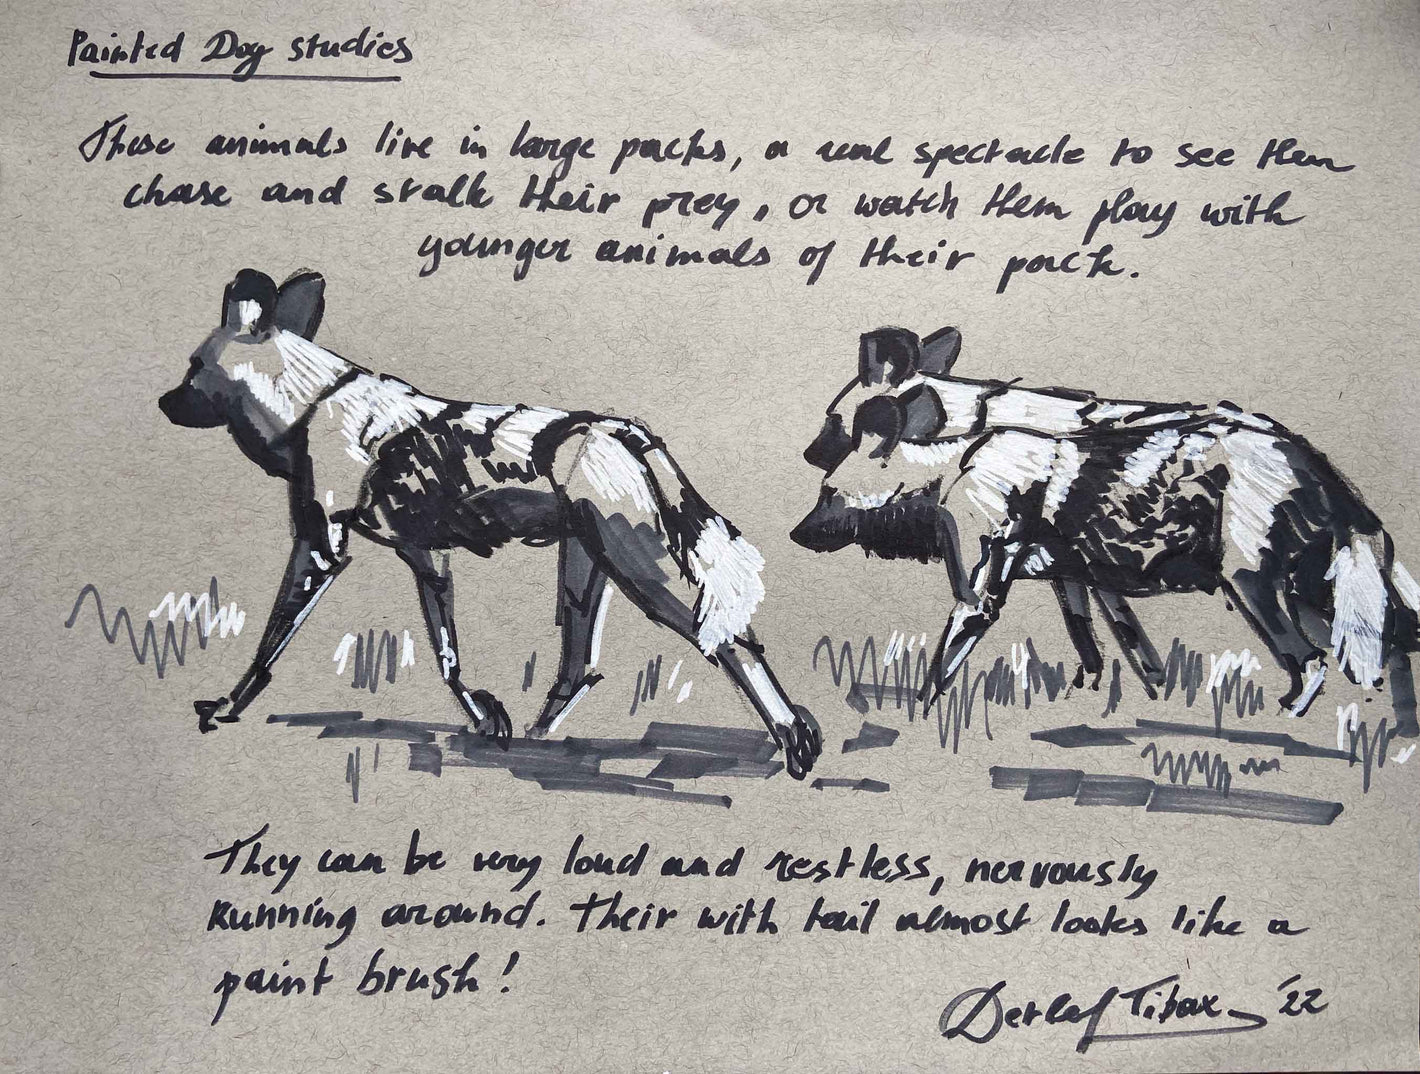 Painted Dog studies
These animals live in large packs, a real spectacle to see them
chase and stalk their prey, or watch them play with
younger animals of their pack.
They can be very loud and restless, nervously
running around. Their with tail almost looks like a
paint brush!
Detlef Tibax '22